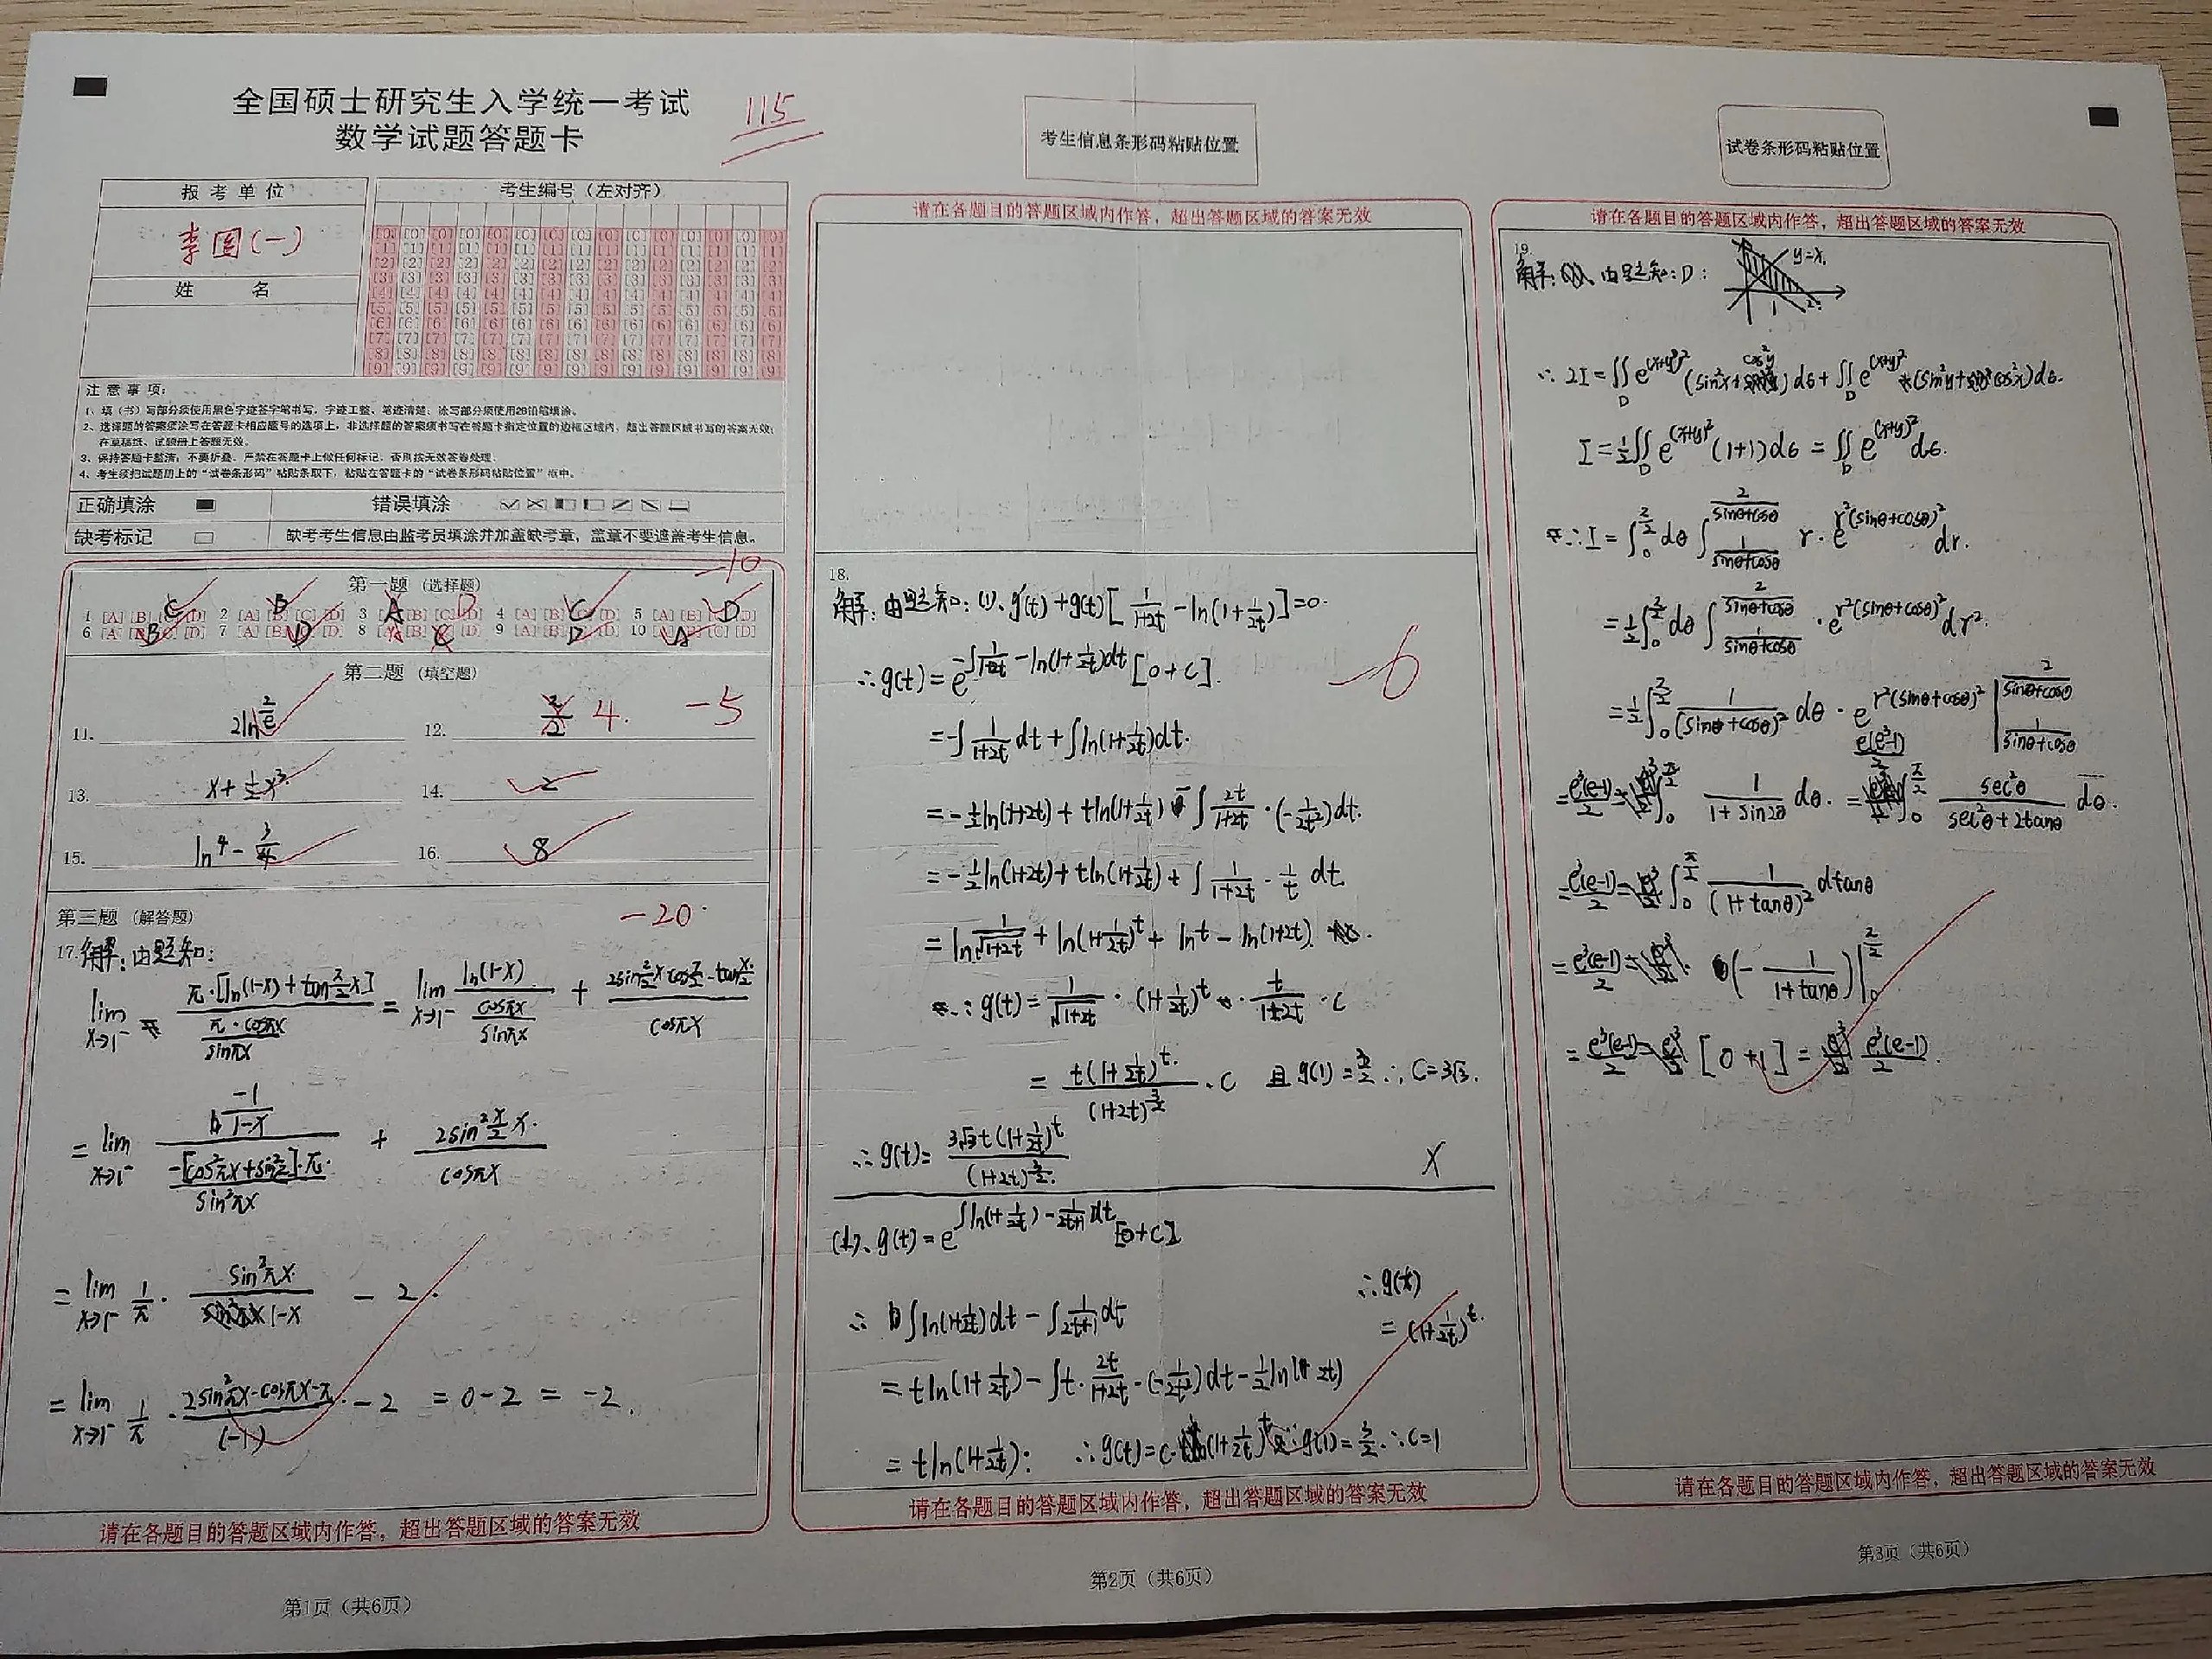 全国硕士研究生入学统一考试
数学试题答题卡
115
报考单位
考生编号（左对齐）
李国(一)
姓 名
注意事项：
1、填（书）写部分须使用黑色字迹签字笔书写，字迹工整、笔迹清楚；涂写部分须使用2B铅笔填涂。
2、选择题的答案须涂写在答题卡相应题号的选项上，非选择题的答案须书写在答题卡指定位置的边框区域内，超出答题区域书写的答案无效；
在草稿纸、试题册上答题无效。
3、保持答题卡整洁，不要折叠，严禁在答题卡上做任何标记，否则按无效答卷处理。
4、考生须把试题册上的“试卷条形码”粘贴条取下，粘贴在答题卡的“试卷条形码粘贴位置”框中。
正确填涂 错误填涂
缺考标记 缺考考生信息由监考员填涂并加盖缺考章，盖章不要遮盖考生信息。
-10
第一题（选择题）
1 [A] [B] C [D] 2 [A] B [C] [D] 3 A [B] [C] D 4 [A] [B] C [D] 5 [A] [B] [C] D
6 [A] B [C] [D] 7 [A] [B] D 8 [A] [B] C [D] 9 [A] [B] D 10 A [B] [C] [D]
第二题（填空题）
11. 2ln 2/e 12. π/2 4. -5
13. x+½x³ 14. 2
15. ln4-3/4 16. 8
第三题（解答题） -20
17. 解：由题知：
lim x→1⁻ π·[ln(1-x)+tan π/2 x] / (π·cosπx / sinπx) = lim x→1⁻ ln(1-x) / (cosπx / sinπx) +
cosπx
= lim x→1⁻ (-1/(1-x)) / (-[cos²πx+sin²πx]·π / sin²πx) + 2sin² π/2 x / cosπx
= lim x→1⁻ 1/π · sin²πx / (1-x) - 2.
= lim x→1⁻ 1/π · 2sinπx·cosπx·π / (-1) - 2 = 0-2 = -2.
请在各题目的答题区域内作答，超出答题区域的答案无效
第1页（共6页）
考生信息条形码粘贴位置
请在各题目的答题区域内作答，超出答题区域的答案无效
18.
解：由题知：(1)、g'(t)+g(t)[1/(1+2t) - ln(1+1/2t)]=0.
∴g(t)=e^{-∫1/(1+2t) - ln(1+1/2t)dt}[0+C].
-6
= -∫1/(1+2t) dt + ∫ln(1+1/2t)dt.
= -½ln(1+2t) + tln(1+1/2t) - ∫ 2t/(1+2t) · (-1/2t²)dt.
= -½ln(1+2t) + tln(1+1/2t) + ∫ 1/(1+2t) · 1/t dt.
= ln 1/√(1+2t) + ln(1+1/2t)^t + lnt - ln(1+2t).
∴g(t) = 1/√(1+2t) · (1+1/2t)^t · t/(1+2t) · C
= t(1+1/2t)^t / (1+2t)^{3/2} · C 且 g(1)=3/2 ∴C=3√3.
∴g(t) = 3√3t(1+1/2t)^t / (1+2t)^{3/2}. X
(1)、g(t)=e^{∫ln(1+1/2t) - 1/(2t+1) dt}[0+C]
∴g(t)
∴ ∫ln(1+1/2t)dt - ∫1/(2t+1)dt = (1+1/2t)^t.
= tln(1+1/2t) - ∫t· 2t/(1+2t) ·(-1/2t²)dt - ½ln(1+2t)
= tln(1+1/2t): ∴g(t)=C·(1+1/2t)^t g(1)=3/2 ∴C=1
请在各题目的答题区域内作答，超出答题区域的答案无效
第2页（共6页）
试卷条形码粘贴位置
请在各题目的答题区域内作答，超出答题区域的答案无效
19.
解：由题知：D： y=x. 1 2
∴2I=∬_D e^{(x+y)²}(sin²x+cos²y)dσ+∬_D e^{(x+y)²}(sin²y+cos²x)dσ.
I=½∬_D e^{(x+y)²}(1+1)dσ = ∬_D e^{(x+y)²}dσ.
∴I = ∫_0^{π/2} dθ ∫_{1/(sinθ+cosθ)}^{2/(sinθ+cosθ)} r·e^{r²(sinθ+cosθ)²} dr.
= ½∫_0^{π/2} dθ ∫_{1/(sinθ+cosθ)}^{2/(sinθ+cosθ)} ·e^{r²(sinθ+cosθ)²}dr².
= ½∫_0^{π/2} 1/(sinθ+cosθ)² dθ · e^{r²(sinθ+cosθ)²} |_{1/(sinθ+cosθ)}^{2/(sinθ+cosθ)}
e(e³-1)
∫_0^{π/2} 1/(1+sin2θ) dθ. = ∫_0^{π/2} sec²θ/(sec²θ+2tanθ) dθ.
∫_0^{π/2} 1/(1+tanθ)² dtanθ
(-1/(1+tanθ))|_0^{π/2}
= e³(e-1)/2 [0+1] = e³(e-1)/2.
请在各题目的答题区域内作答，超出答题区域的答案无效
第3页（共6页）